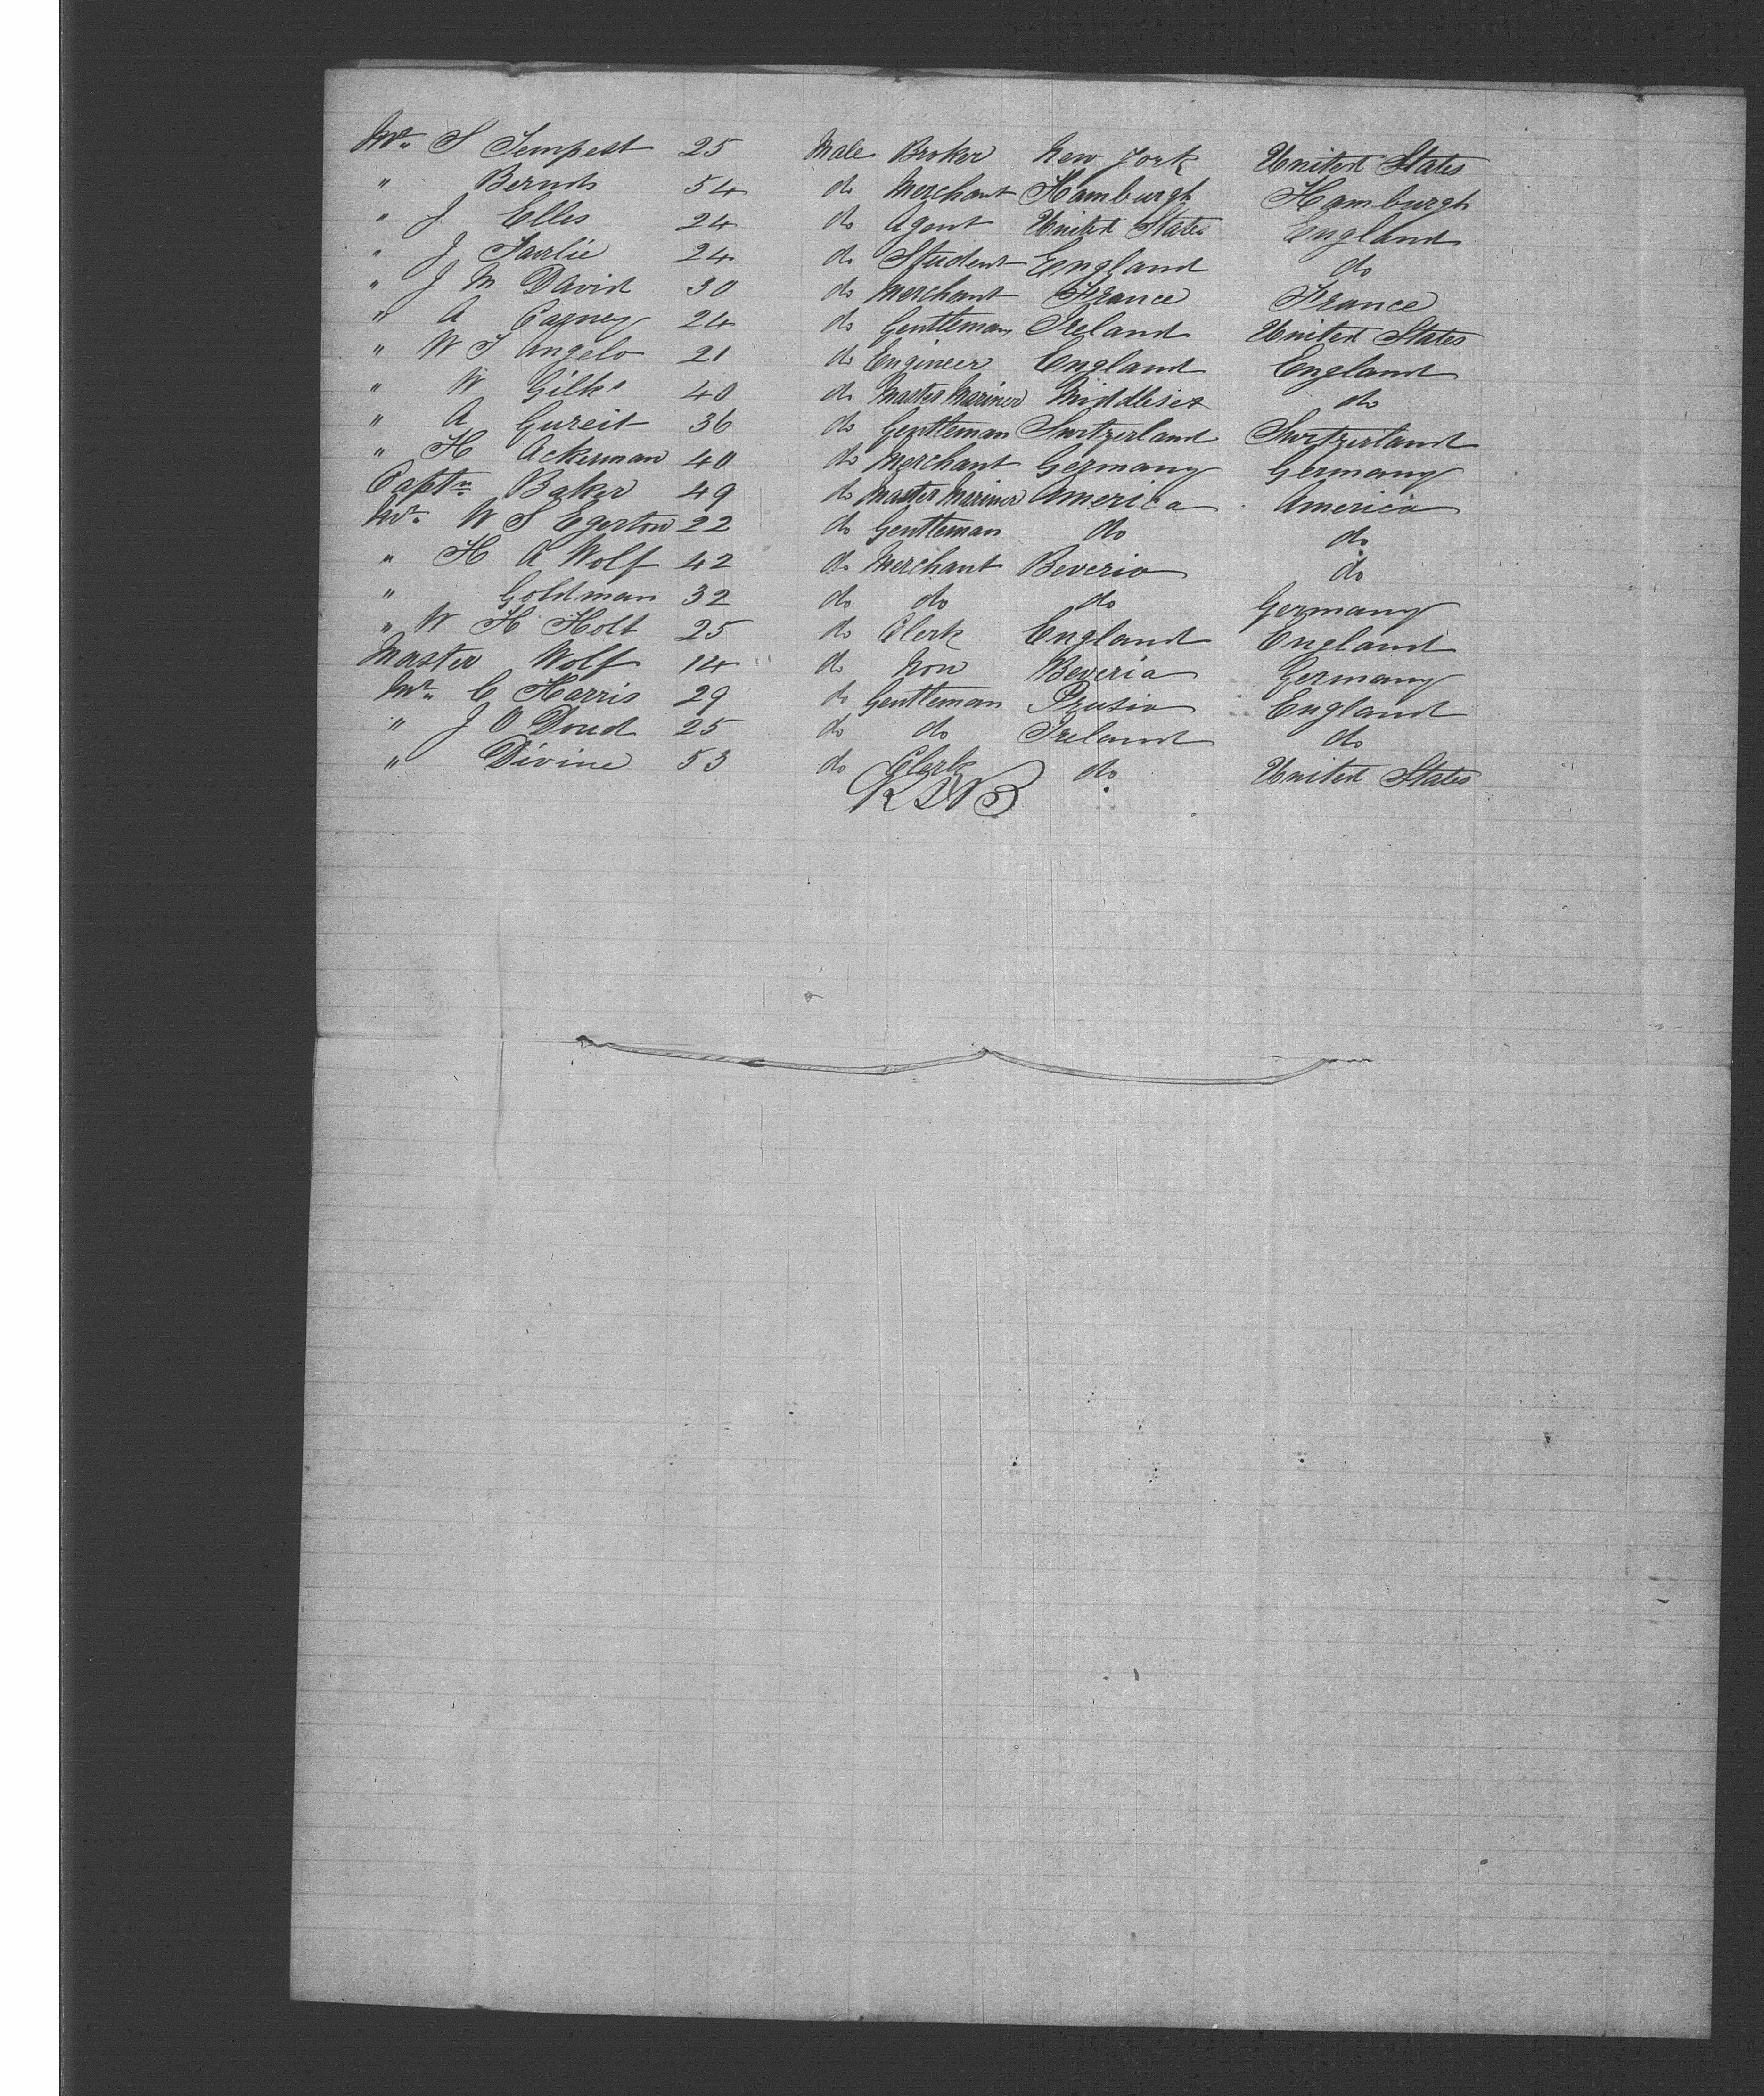 Mr. S Tempest 25 Male Broker New York United States
" Bernds 54 do Merchant Hamburgh Hamburgh
" J Elles 24 do Agent United States England
" J Fairlie 24 do Student England do
" J M David 30 do Merchant France France
" A Cagney 24 do Gentleman Ireland United States
" W T Angelo 21 do Engineer England England
" W Gilks 40 do Master Mariner Middlesex do
" A Gureit 36 do Gentleman Switzerland Switzerland
" H Ackerman 40 do Merchant Germany Germany
Captn Baker 49 do Master Mariner America America
Mr. W S Egerton 22 do Gentleman do do
" H A Wolf 42 do Merchant Beveria do
" Goldman 32 do do do Germany
" W H Holt 25 do Clerk England England
Master Wolf 14 do Non Beveria Germany
Mr. C Harris 29 do Gentleman Prusia England
" J O Doud 25 do do Ireland do
" Divine 53 do Clerk do United States